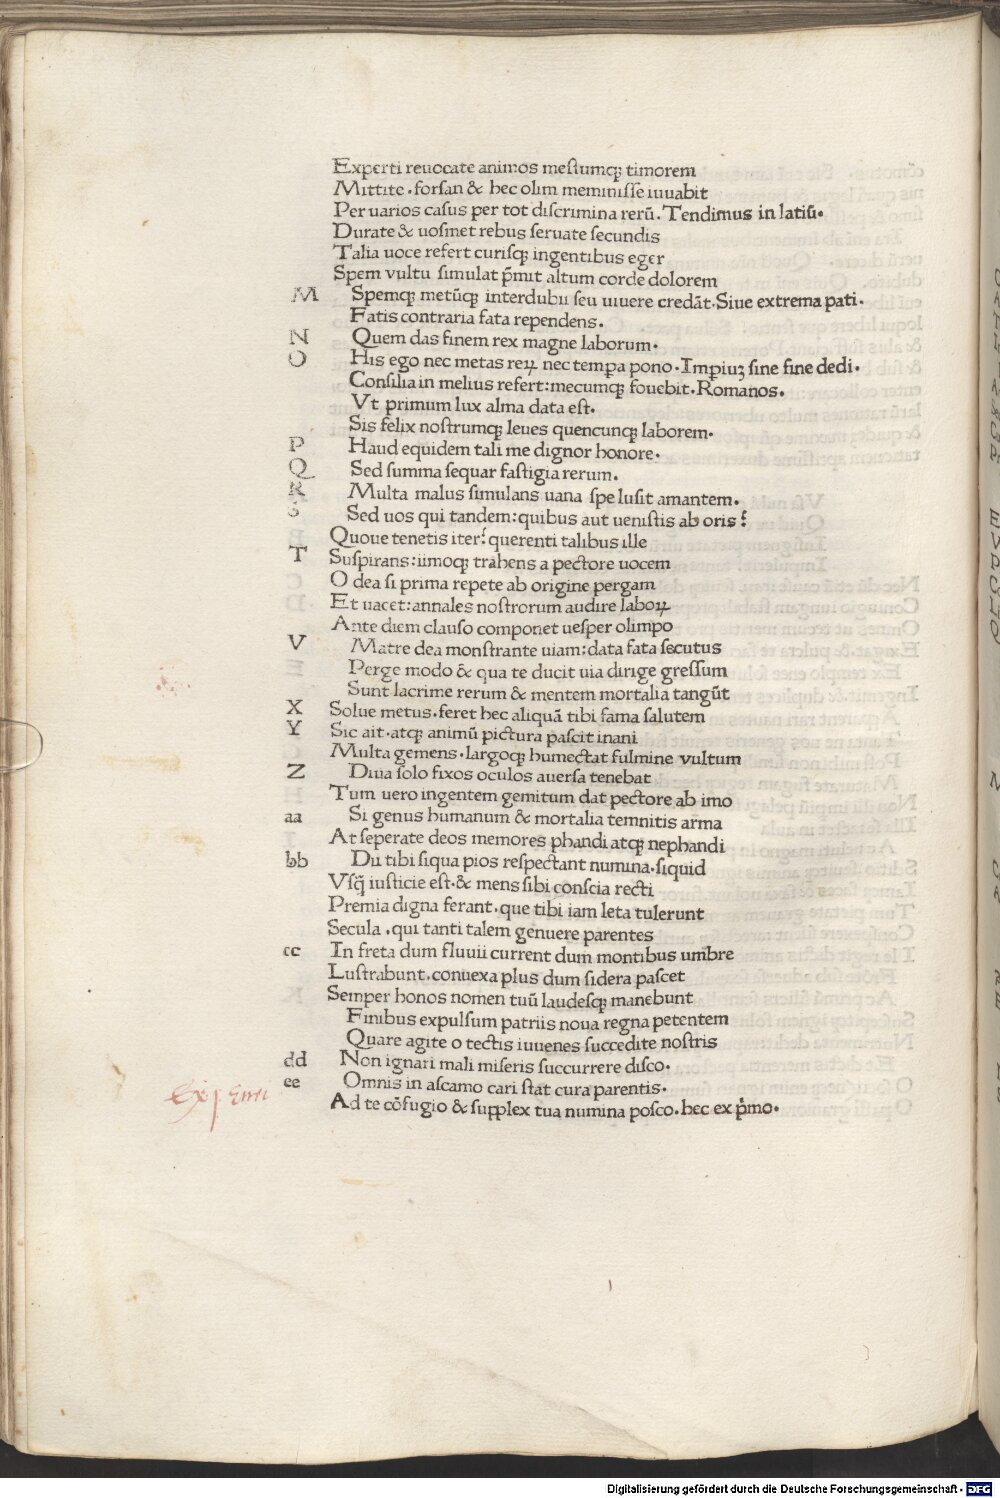 Experti reuocate animos mestumq; timorem
Mittite . forsan & hec olim meminisse iuuabit
Per uarios casus per tot discrimina rerū . Tendimus in latiū.
Durate & uosmet rebus seruate secundis
Talia uoce refert curisq; ingentibus eger
Spem vultu simulat p̄mit altum corde dolorem
M Spemq; metūq; interdubii seu uiuere credāt . Siue extrema pati .
Fatis contraria fata rependens .
N Quem das finem rex magne laborum .
O His ego nec metas reꝝ nec temp̱a pono . Imp̱iuꝫ sine fine dedi .
Consilia in melius refert : mecumq; fouebit . Romanos .
Vt primum lux alma data est .
Sis felix nostrumq; leues quencunq; laborem .
P Haud equidem tali me dignor honore .
Q Sed summa sequar fastigia rerum .
R Multa malus simulans uana spe lusit amantem .
S Sed uos qui tandem : quibus aut uenistis ab oris ?
Quoue tenetis iter ? querenti talibus ille
T Suspirans : iimoq; trahens a pectore uocem
O dea si prima repete ab origine pergam
Et uacet : annales nostrorum audire laboꝝ
Ante diem clauso componet uesper olimpo
V Matre dea monstrante uiam : data fata secutus
Perge modo & qua te ducit uia dirige gressum
Sunt lacrime rerum & mentem mortalia tangūt
X Solue metus . feret hec aliquā tibi fama salutem
Y Sic ait . atq; animū pictura pascit inani
Multa gemens . largoq; humectat fulmine vultum
Z Diua solo fixos oculos auersa tenebat
Tum uero ingentem gemitum dat pectore ab imo
aa Si genus humanum & mortalia temnitis arma
At seperate deos memores phandi atq; nephandi
bb Dii tibi siqua pios respectant numina . siquid
Vsq̄ iusticie est . & mens sibi conscia recti
Premia digna ferant . que tibi iam leta tulerunt
Secula . qui tanti talem genuere parentes
cc In freta dum fluuii current dum montibus umbre
Lustrabunt . conuexa plus dum sidera pascet
Semper honos nomen tuū laudesq; manebunt
Finibus expulsum patriis noua regna petentem
Quare agite o tectis iuuenes succedite nostris
dd Non ignari mali miseris succurrere disco .
ee Omnis in ascamo cari stat cura parentis .
Ad te cōfugio & supplex tua numina posco . hec ex p̄mo .
Digitalisierung gefördert durch die Deutsche Forschungsgemeinschaft - DFG